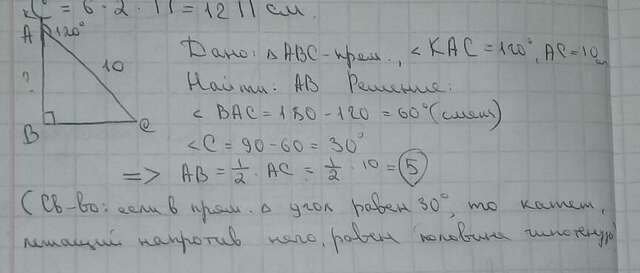 = 6 · 2 · П = 12 П см.
A 120°
10
?
B
C
Дано: △ ABC - прям., < KAC = 120°, AC = 10 см
Найти: AB Решение:
< BAC = 180 - 120 = 60° (смеж)
< C = 90 - 60 = 30°
=> AB = 1/2 · AC = 1/2 · 10 = 5
(Св-во: если в прям. △ угол равен 30°, то катет,
лежащий напротив него, равен половине гипотенузы